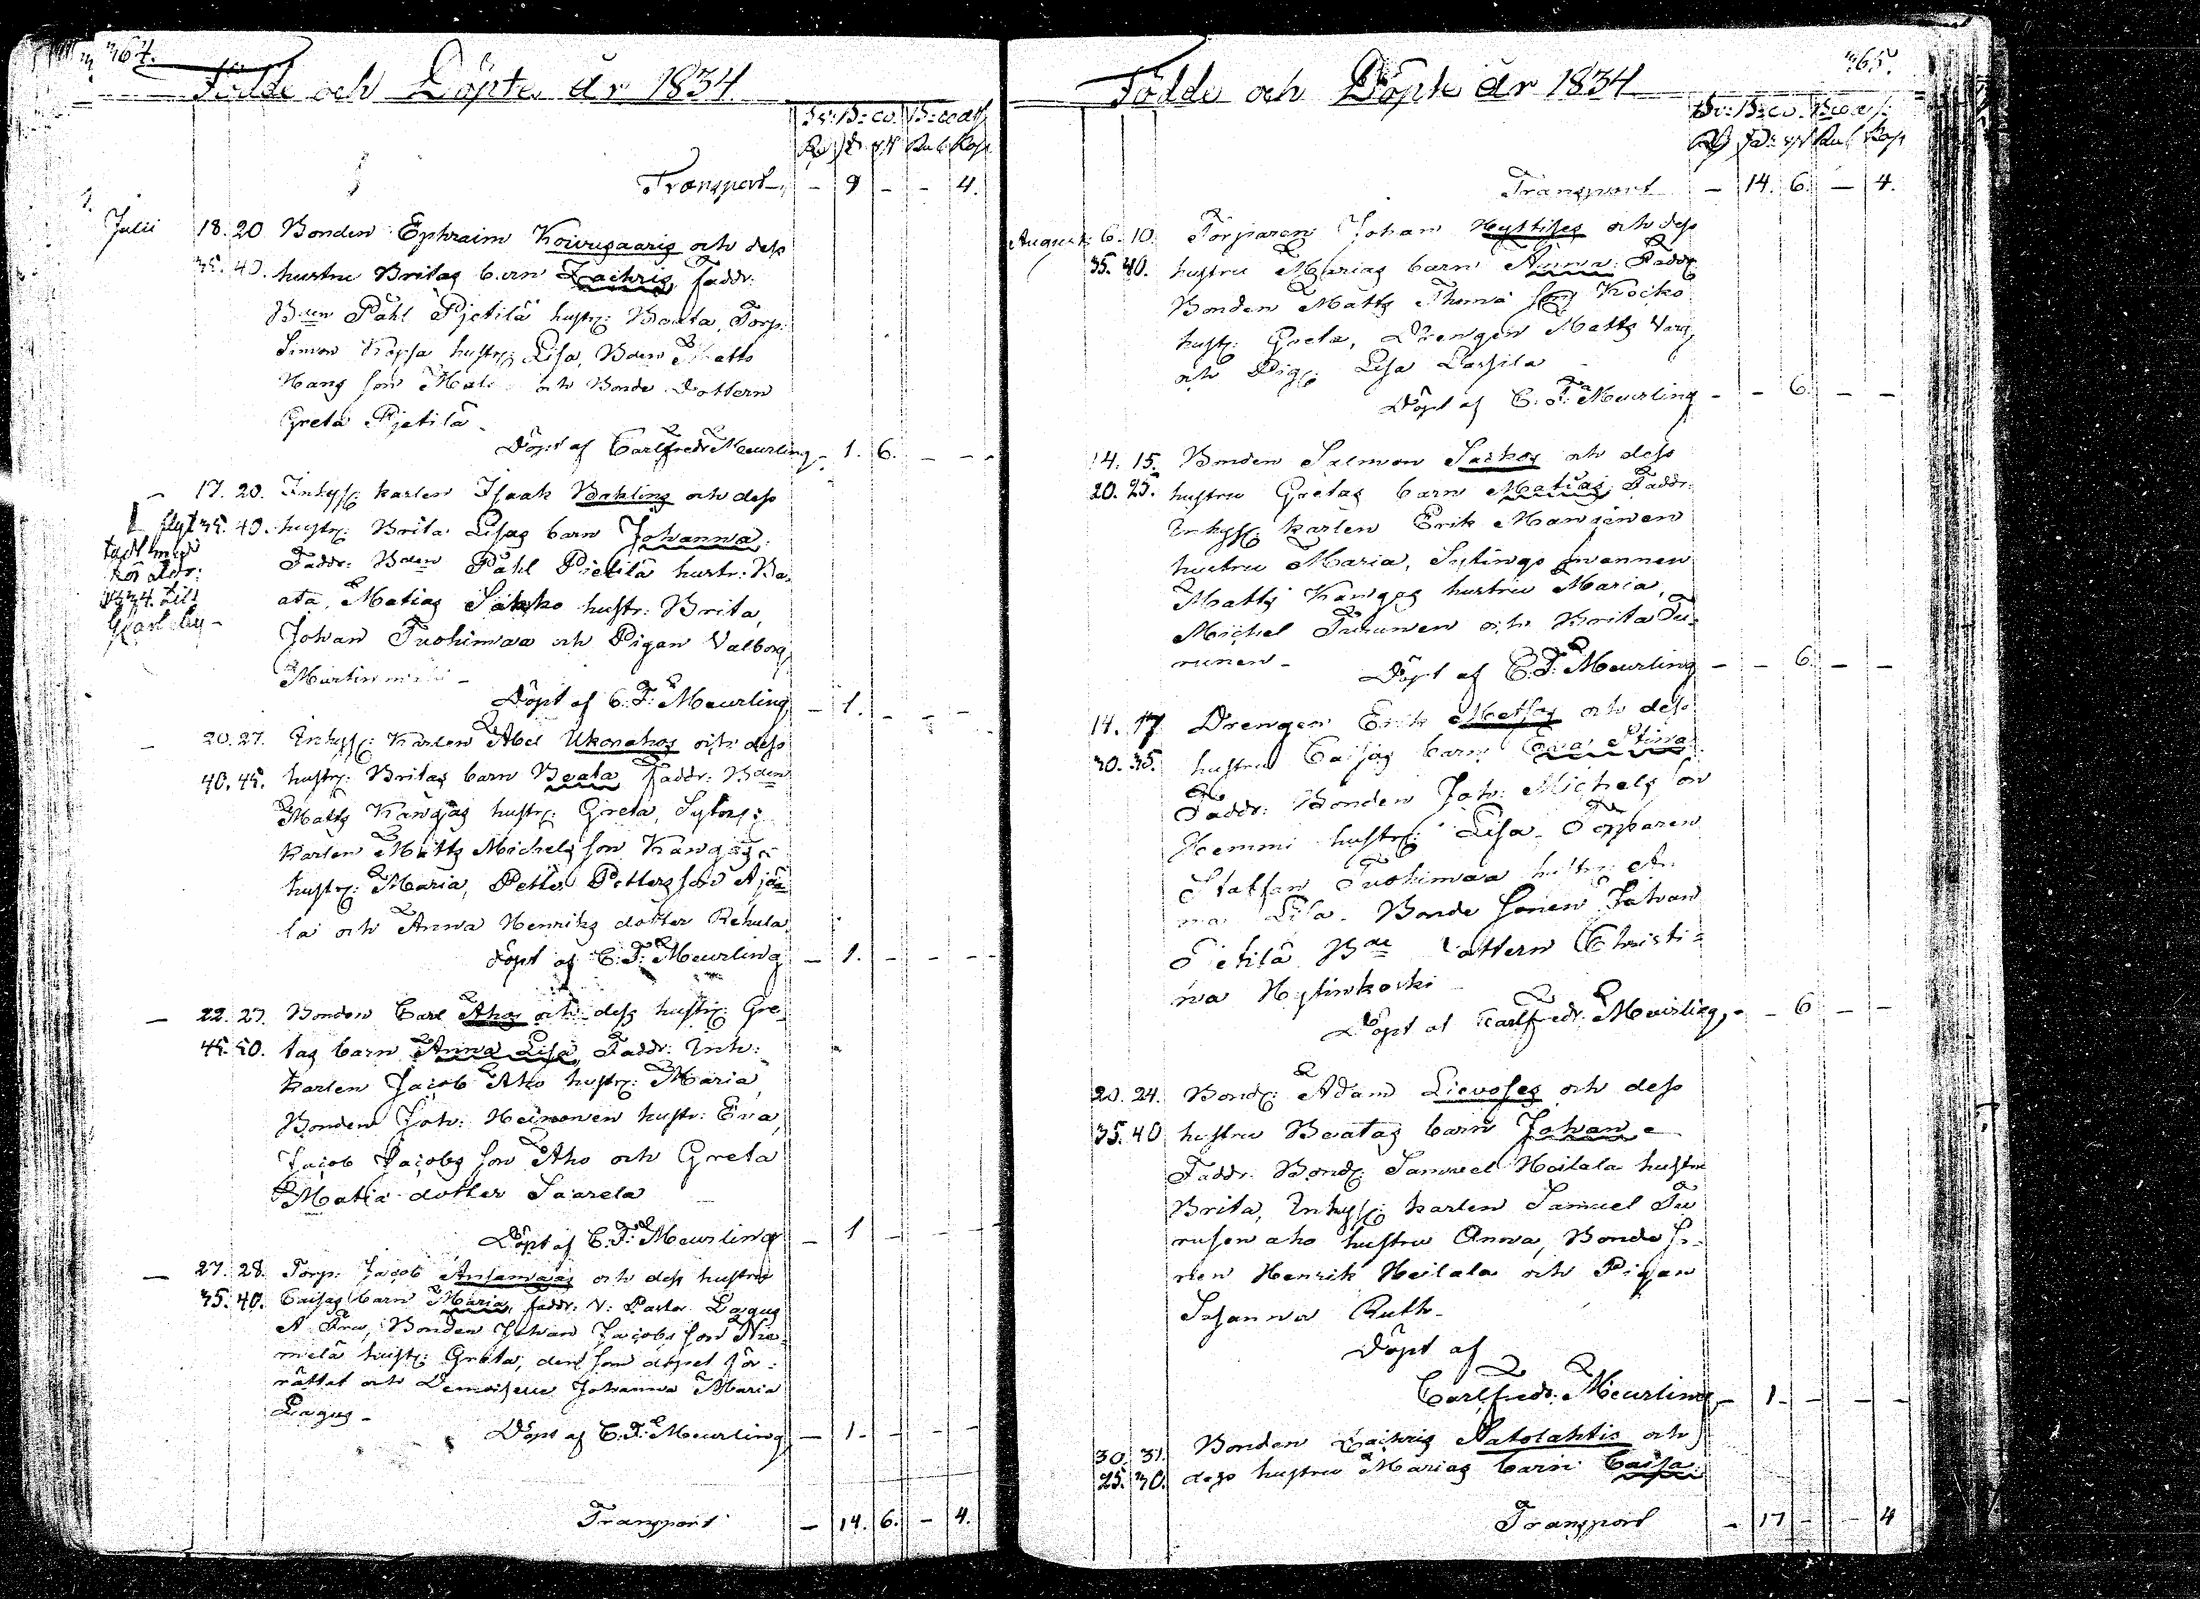 364.
Födde och Döpte År 1834
Transport - 9 - - 4.
Julii 18. 20 Bonden Ephraim Koivusaaris och dess
35. 40. hustru Britas barn Zachris, faddr:
B:en Påhl Pietilä hustr: Beata, Torp:
Simon Kopsa hustr: Lisa, B:den Matts
Hans son och Bonde Dottern
Greta Pietilä
Döpt af Carl fredr: Meurling - 1. 6. - -
17. 20. Inhyss: karlen Isaak Bahlins och dess
35. 40. hustr: Brita Lisas barn Johanna.
Faddr: B:den Påhl Pietilä hustr: Be-
ata, Matias Sakko hustr: Brita,
Johan Tuohimaa och Pigan Valborg
Döpt af C. F. Meurling - 1. - - -
20. 27. Inhyss: Karlen Abel Ukonahos och dess
40. 45. hustr: Britas barn Beata faddr: B:den
Matts Kangas hustr: Greta,
karlen Matts Michels son Kangas
hustr: Maria, Petter Petters son
la och Anna Henriks dotter Rekula
döpt af C. F. Meurling - 1. - - -
22. 27. Bonden Carl Ahos och dess hustr: Gre-
45. 50. tas barn Anna Lisa Faddr: Inh:
karlen Jacob Aho hustr: Maria,
Bonden Joh: Heinonen hustr: Eva,
Jacob Jacobs son Aho och Greta
Matia dotter Saarela
Döpt af C. F. Meurling - 1 - -
27. 28. Torp: Jacob Ansamaas och dess hustru
35. 40. Caisas barn Maria, faddr: V: Pastor Lagus
Fru, Bonden Johan Jacobs son Nie-
melä hustr: Greta, den som döpet för-
rättat och Demoiselle Johanna Maria
Lagus -
Döpt af C. F. Meurling - 1. - - -
Transport - 14. 6. - 4.
365.
Födde och Döpte År 1834
Transport - 14. 6. - 4.
Augusti 6. 10. Torparen Johan Hyttises och dess
35. 40. hustru Marias barn Anna. Faddr
Bonden Matts Thoma son
hustr: Greta, Drengen Matts
och Pig: Lisa Lassila
Döpt af C. F. Meurling - - 6. - -
14. 15. Bonden Salmon och dess
20. 25. hustru Gretas barn Matias Faddr:
Inhyss: karlen Erik
hustru Maria, Sytings mannen
Matts Kangas hustru Maria,
Michel Turunen och Brita Tu-
runen -
Döpt af C. F. Meurling - - 6. - -
14. 17 Drengen Erik Metsas och dess
30. 35. hustru Caisas barn Eva Stina
Faddr: Bonden Joh: Michels son
Hemmi hustr: Lisa. Torparen
Staffan Tuohimaa hustr: An-
na Lisa. Bonde sonen Johan
Pietilä B:de dottern Christi-
na
Döpt af Carl fredr: Meurling - - 6 - -
20. 24. Bond: Adam Lievoses och dess
35. 40 hustru Beatas barn Johan
Faddr. Bond: Samuel Heilala hustru
Brita, Inhyss: karlen Samuel Tu
rusen aho hustru Anna, Bonde so-
nen Henrik Heilala och Pigan
Susanna Ruth -
Döpt af
Carl fredr: Meurling - 1. - - -
30. 31. Bonden Zachris Patolahtis och
25. 30. dess hustru Marias barn Caisa
Transport - 17 - - 4